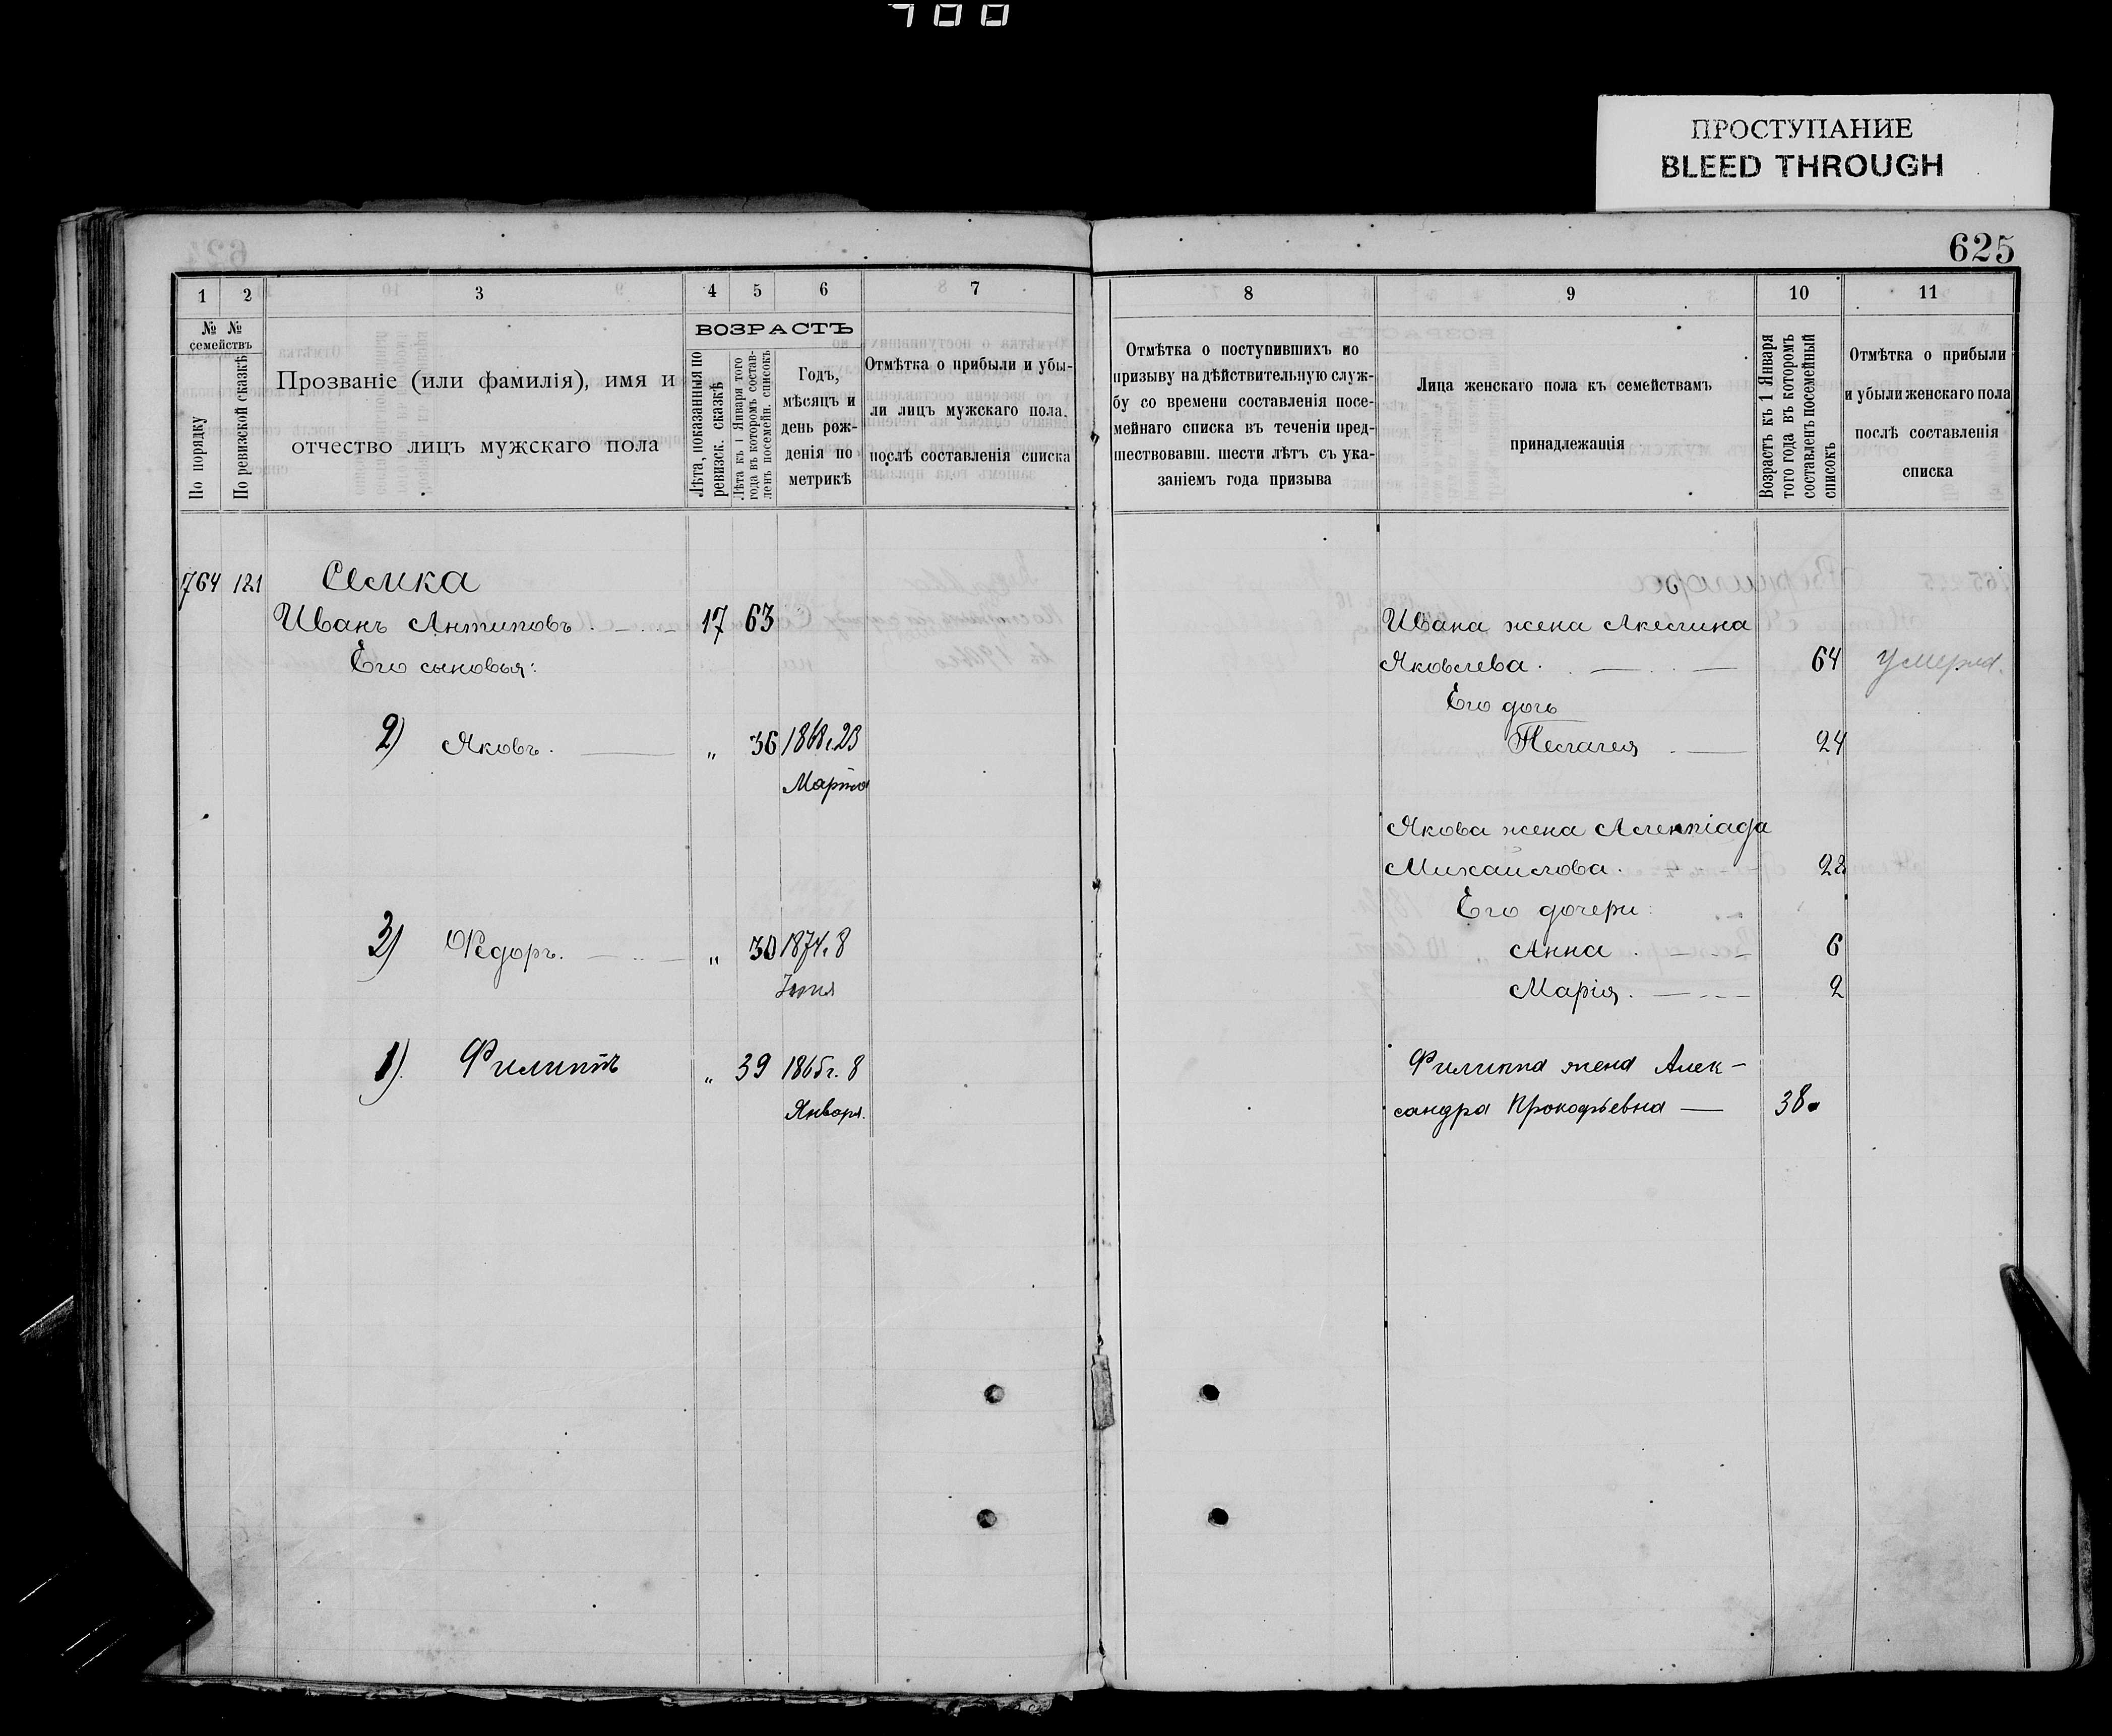 400
ПРОСТУПАНИЕ
BLEED THROUGH
625
1 2 3 4 5 6 7
№ №
семействъ
По порядку
По ревизской сказкѣ
Прозваніе (или фамилія), имя и
отчество лицъ мужскаго пола
ВОЗРАСТЪ
Лѣта, показанныя по
ревизск. сказкѣ
Лѣта къ 1 Января того
года въ которомъ состав-
ленъ посемейн. списокъ
Годъ,
мѣсяцъ и
день рож-
денія по
метрикѣ
Отмѣтка о прибыли и убы-
ли лицъ мужскаго пола,
послѣ составленія списка
764 121
Иванъ Антиповъ. 17 63
Его сыновья:
2) Яковъ. „ 36 1868г. 23
Марта
3) Ѳедоръ. „ 30 1874г. 8
1) Филиппъ „ 39 1865г. 8
Января.
8 9 10 11
Отмѣтка о поступившихъ по
призыву на дѣйствительную служ-
бу со времени составленія посе-
мейнаго списка въ теченіи пред-
шествовавш. шести лѣтъ съ ука-
заніемъ года призыва
Лица женскаго пола къ семействамъ
принадлежащія
Возрастъ къ 1 Января
того года въ которомъ
составленъ посемейный
списокъ
Отмѣтка о прибыли
и убыли женскаго пола
послѣ составленія
списка
Ивана жена Акелина
Яковлева. 64 Умерла.
Его дочь
Пелагея 24
Якова жена Асклипіада
Михаилова. 28
Его дочери:
Анна 6
Марія. 2
Филиппа жена Алек-
сандра Прокофьевна 38.